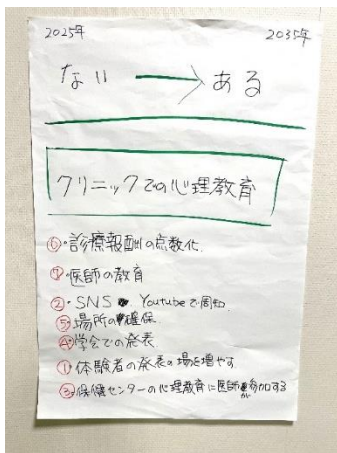 2025年 2035年
ない → ある
クリニックでの心理教育
⑥・診療報酬の点数化
⑦・医師の教育
②・SNS Youtubeで周知
⑤・場所の確保
④・学会での発表
①・体験者の発表の場を増やす
③・保健センターの心理教育に医師が参加する